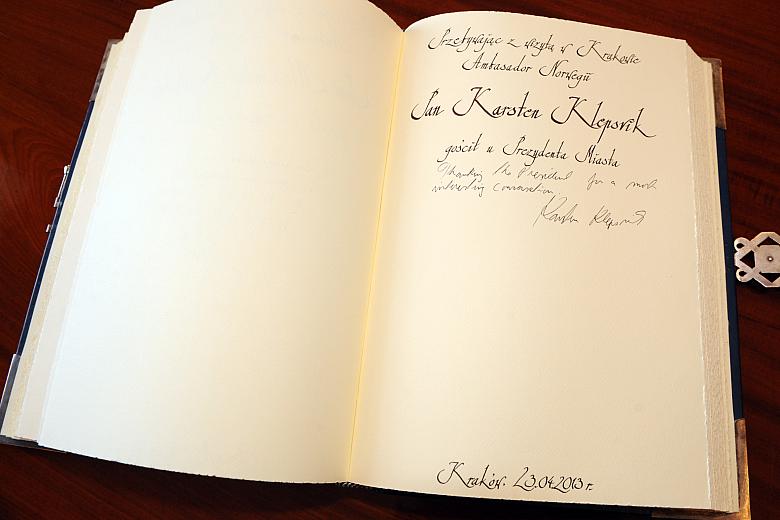 Przebywając z wizytą w Krakowie
Ambasador Norwegii
Pan Karsten Klepsvik
gościł u Prezydenta Miasta
Thanking the President for a most
interesting conversation.
Karsten Klepsvik
Kraków. 23.04.2013 r.